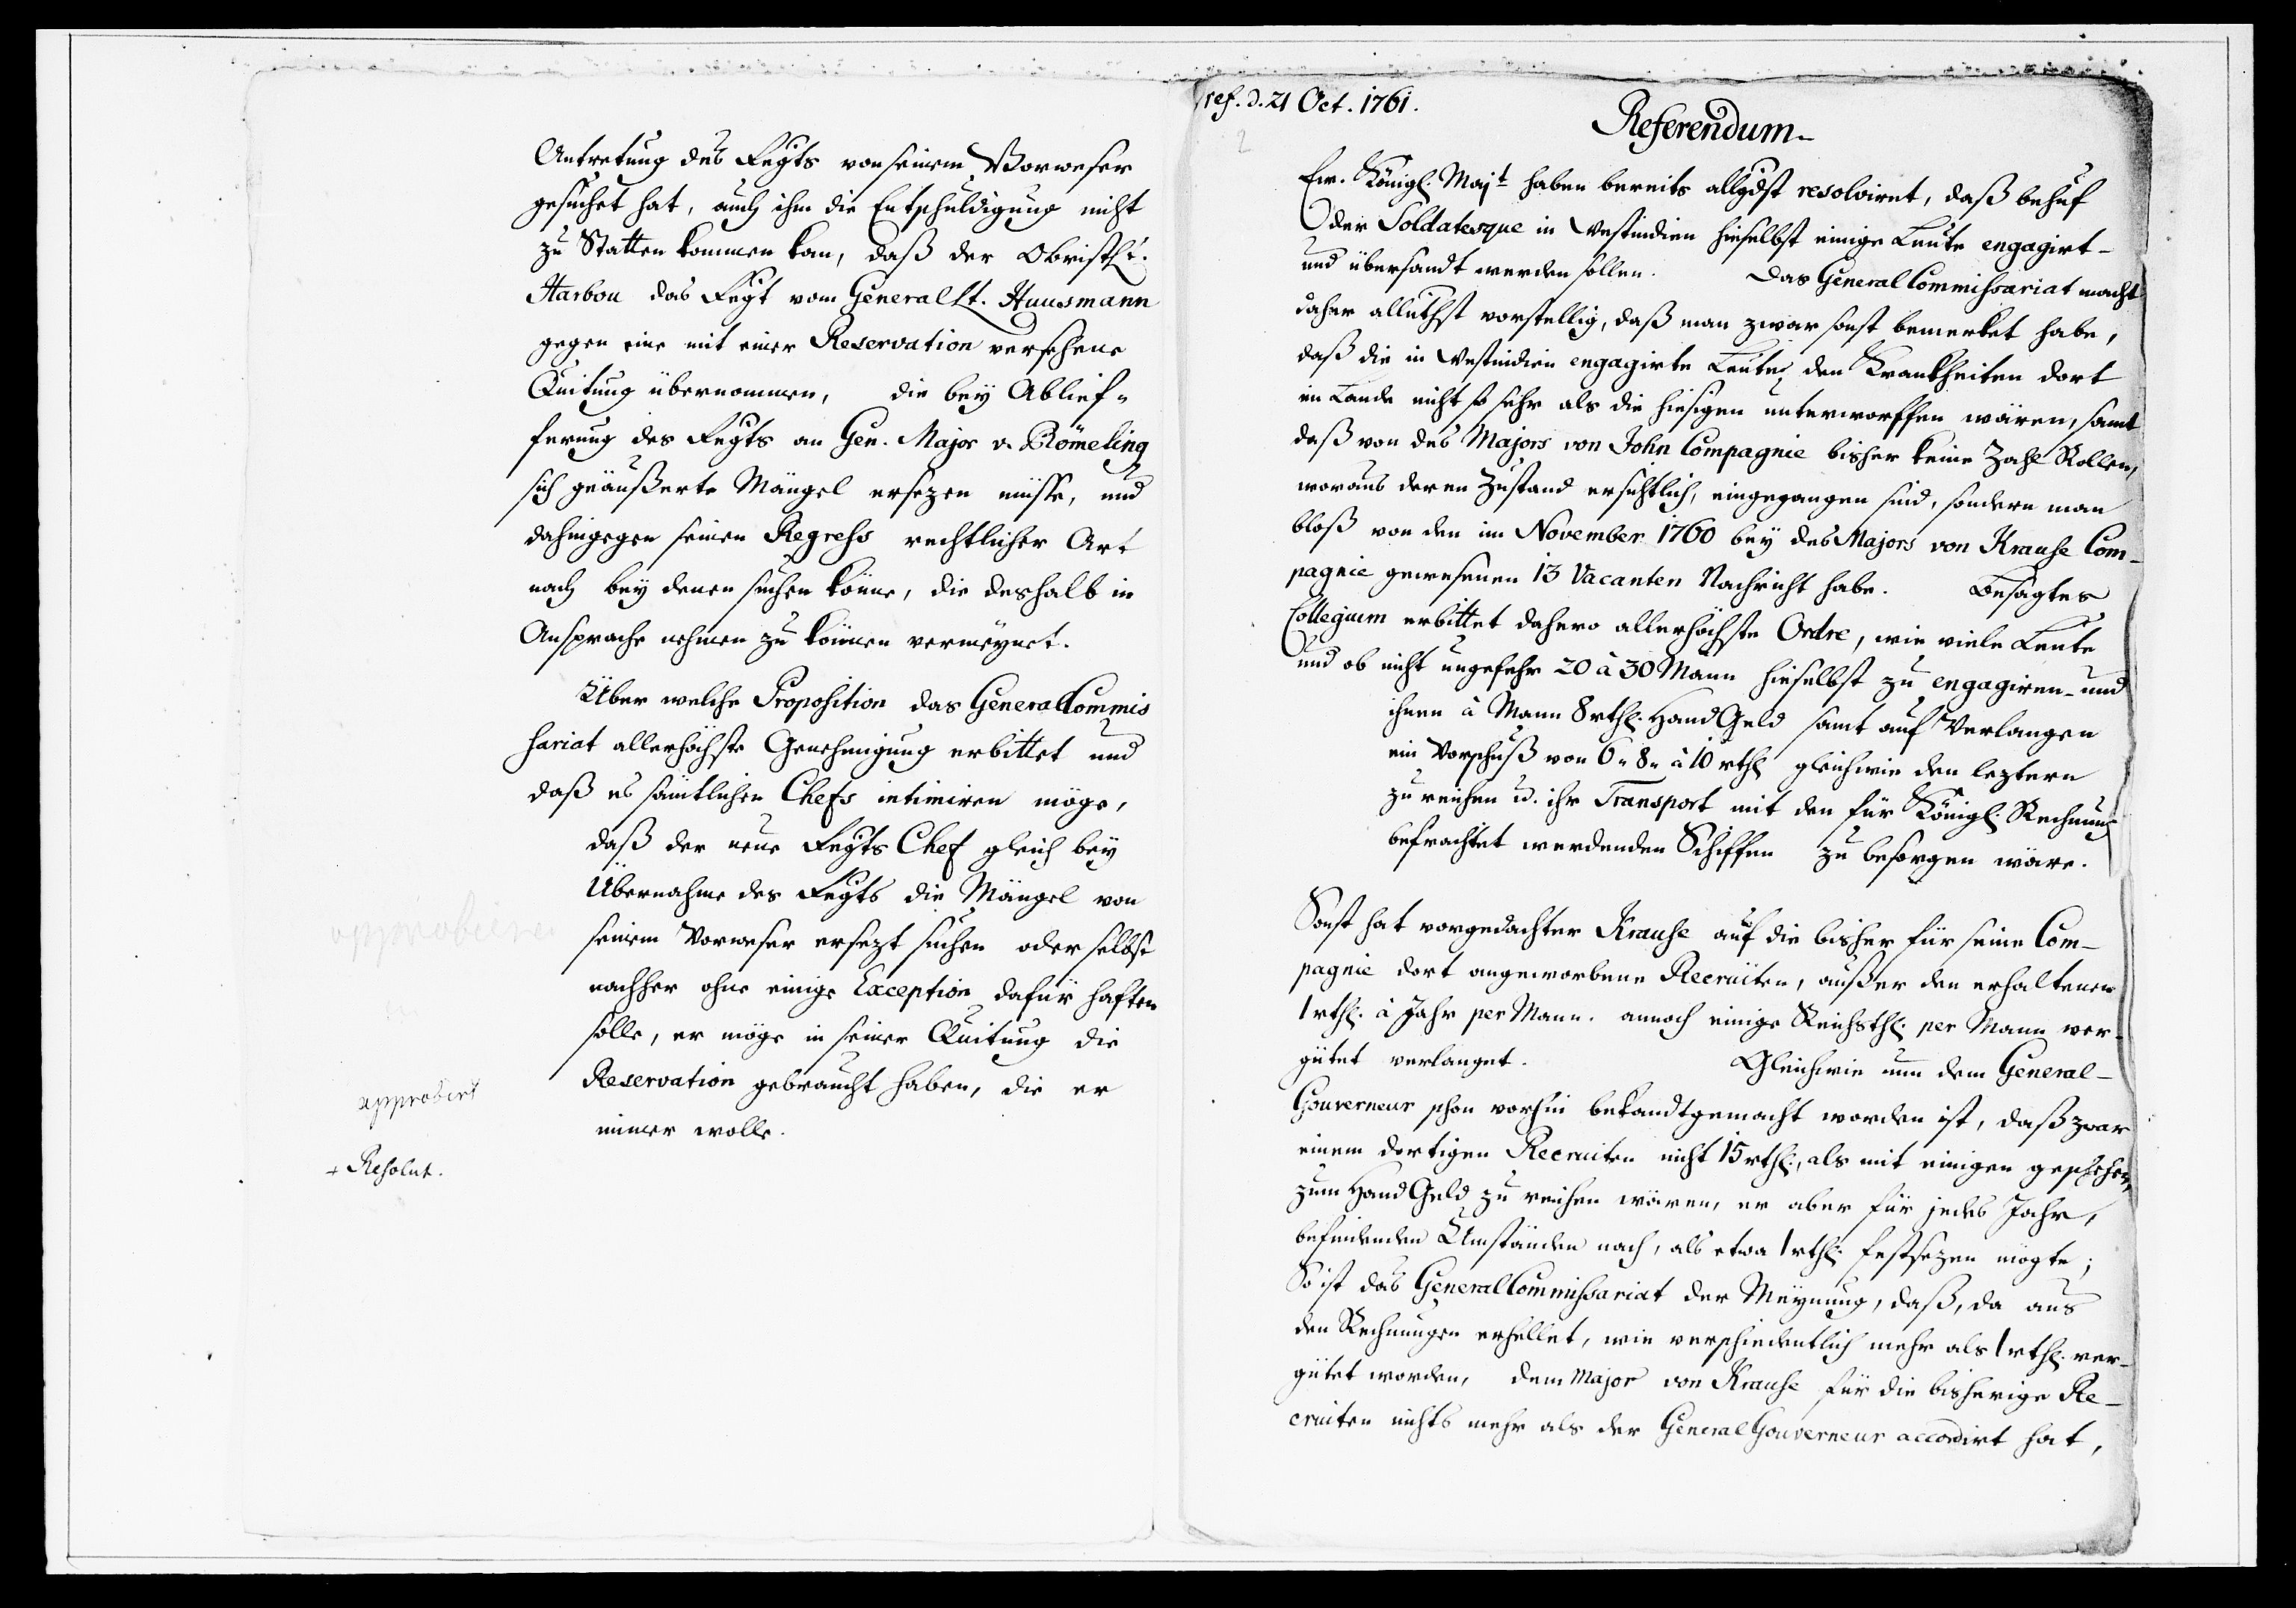 Antretung des Regts von seinem Vorweser
gesuchet hat, auch ihm die Entschuldigung nicht
zu Statten kommen kan, daß der Obristlt.
Harbou das Regt vom General Lt. Huusmann
gegen eine mit einer Reservation versehene
Quitung übernommen, die bey Ablief-
ferung des Regts an Gen. Major v. Römeling
sich geäußerte Mängel ersezen müsse, und
dahingegen seinen Regress rechtlicher Art
nach bey denen suchen könne, die deshalb in
Ansprache nehmen zu können vermeynet.
Über welche Proposition das General Commis
sariat allerhöchste Genehmigung erbittet und
daß es sämtlichen Chefs intimiren möge,
daß der neue Regts Chef gleich bey
Übernahme des Regts die Mängel von
seinem Vorweser ersezt suchen oder selbst
nachher ohne einige Exception dafür haften
solle, er möge in seiner Quitung die
Reservation gebraucht haben, die er
immer wolle.
approbiren
approbirt
+ Resolut.
ref. d. 21 Oct. 1761.
2
Referendum
Ew. Königl. Majt haben bereits allgdst resolviret, daß behuf
der Soldatesque in Westindien hieselbst einige Leute engagirt
und übersandt werden sollen. Das General Commissariat macht
daher allerunthst vorstellig, daß man zwar sonst bemerket habe,
daß die in Westindien engagirte Leute den Krankheiten dort
im Lande nicht so sehr als die hiesigen unterworffen wären, samt
daß von des Majors von John Compagnie bisher keine Zahl Rollen,
woraus deren Zustand ersichtlich, eingegangen sind, sondern man
bloß von den im November 1760 bey des Majors von Krause Com-
pagnie gewesenen 13 Vacanten Nachricht habe. Besagtes
Collegium erbittet dahero allerhöchste Ordre, wie viele Leute
und ob nicht ungefehr 20 à 30 Mann hieselbst zu engagiren und
ihnen à Mann 8 rthl. Hand Geld samt auf Verlangen
ein Vorschuß von 6 " 8 " à 10 rthl gleichwie den leztern
zu reichen u. ihr Transport mit den für Königl. Rechnung
befrachtet werdenden Schiffen zu besorgen wäre.
Sonst hat vorgedachter Krause auf die bisher für seine Com-
pagnie dort angeworbene Recruiten, außer den erhaltenen
1 rthl. à Jahr per Mann. annoch einige Reichsthl. per Mann ver-
gütet verlanget. Gleichwie nun dem General-
Gouverneur schon vorhin bekandtgemacht worden ist, daß zwar
einem dortigen Recruiten nicht 15 rthl., als mit einigen geschehen,
zum Hand Geld zu reichen wären, er aber für jedes Jahr,
befindenden Umständen nach, als etwa 1 rthl. festsezen mögte;
So ist das General Commissariat der Meynung, daß, da aus
den Rechnungen erhellet, wie verschiedentlich mehr als 1 rthl. ver-
gütet worden, dem Major von Krause für die bisherige Re-
cruiten nichts mehr als der General Gouverneur accordirt hat,